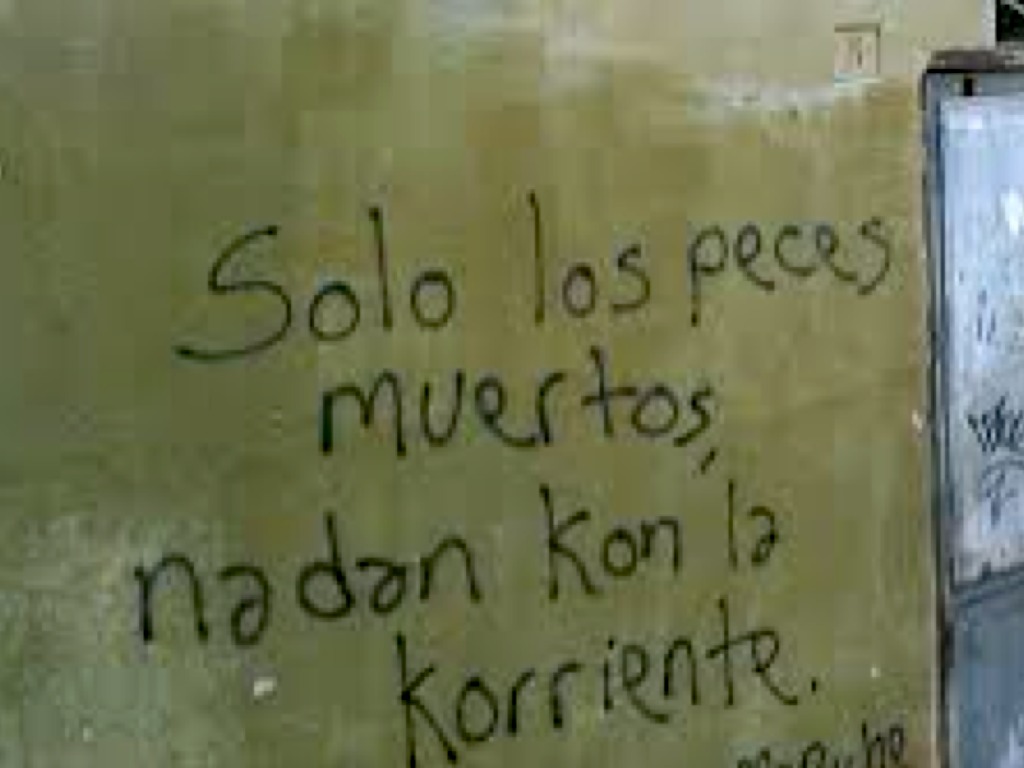 Solo los peces
muertos,
nadan kon la
korriente.